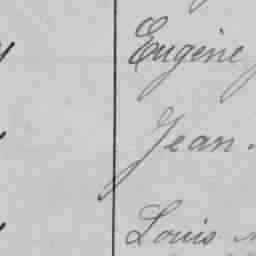 Eugène
Jean
Louis